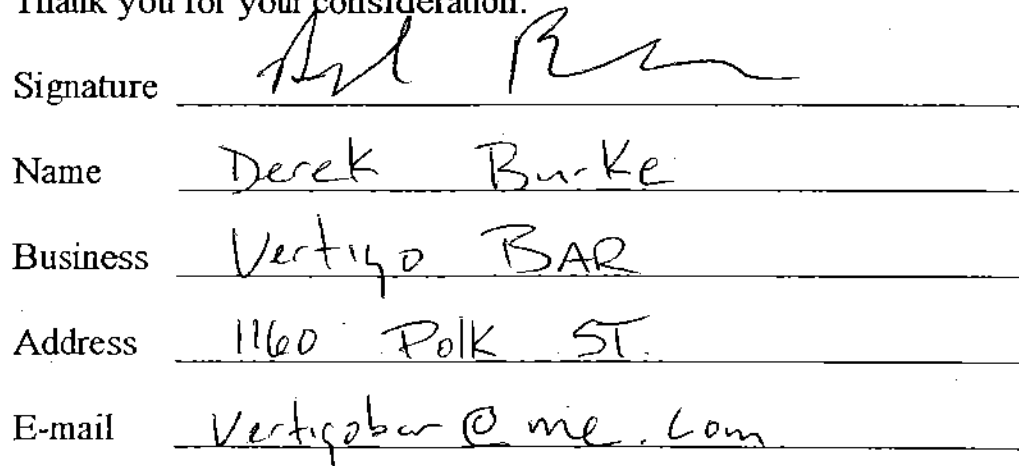 Thank you for your consideration.
Signature
Name Derek Burke
Business Vertigo BAR
Address 1160 Polk ST.
E-mail Vertigobar@me.com